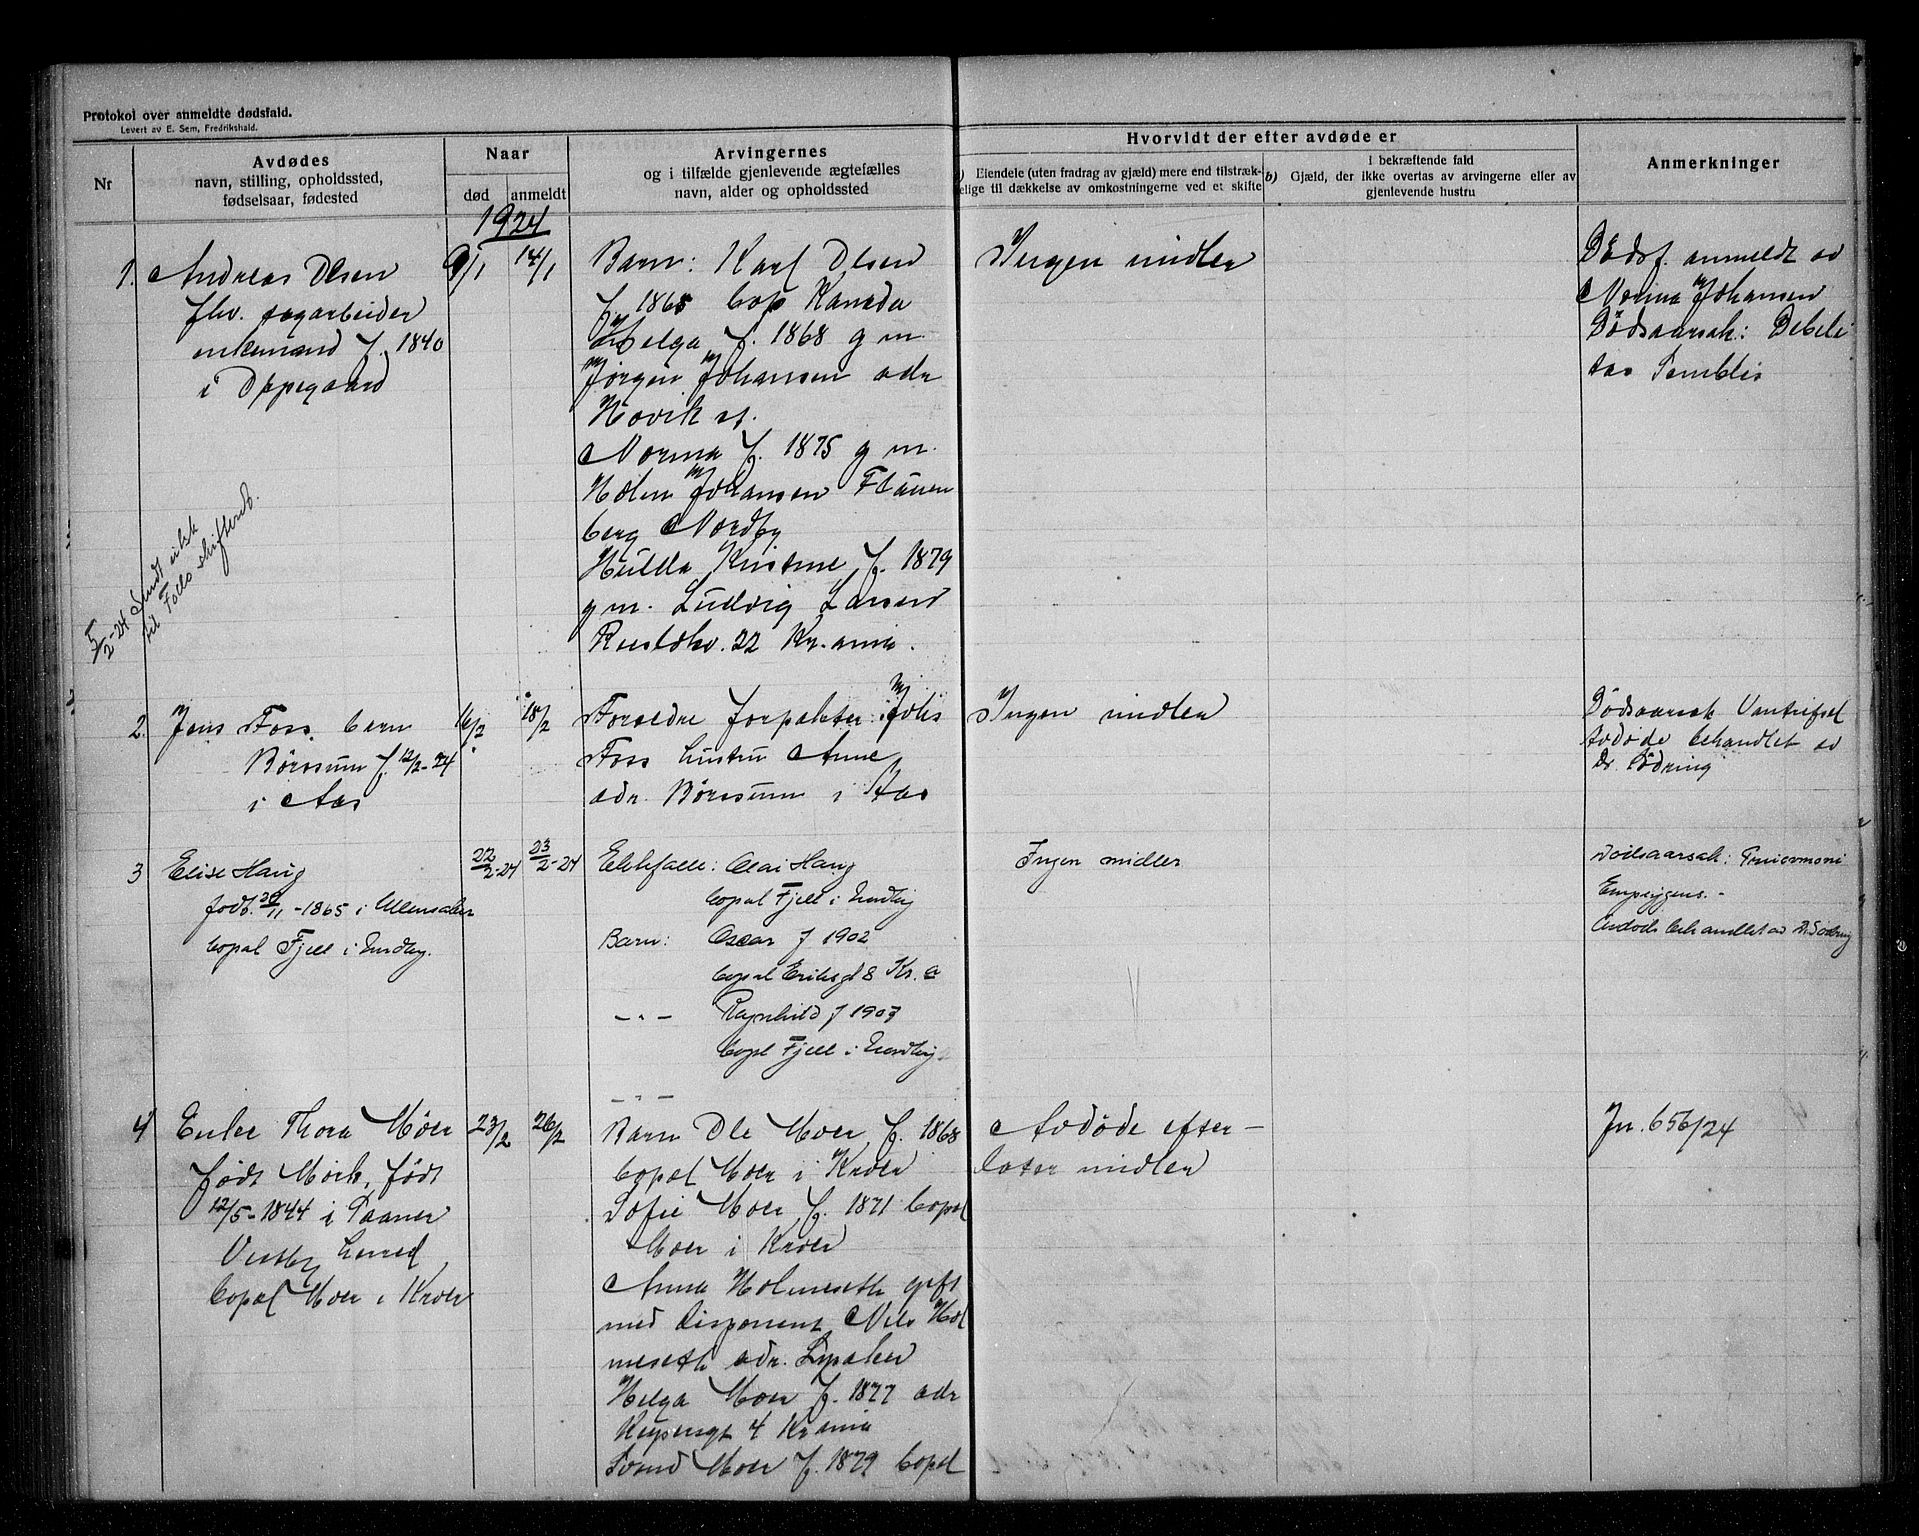 Protokol over anmeldte dødsfald.
Levert av E. Sem, Fredrikshald.
Nr
Avdødes
navn, stilling, opholdssted,
fødselsaar, fødested
Naar
død
anmeldt
Arvingernes
og i tilfælde gjenlevende ægtefælles
navn, alder og opholdssted
Hvorvidt der efter avdøde er
Eiendele (uten fradrag av gjæld) mere end tilstræk-
kelige til dækkelse av omkostningerne ved et skifte
I bekræftende fald
b) Gjæld, der ikke overtas av arvingerne eller av
gjenlevende hustru
Anmerkninger
1924
1.
Andreas Olsen
fhv. sagarbeider
enkemand f. 1840
i Oppegaard
9/1
14/1
Barn: Karl Olsen
f 1865 bop Kanada
Helga f. 1868 g m.
Jørgen Johansen adr
Høvik st.
Norma f. 1875 g m.
Johansen
berg Nordby
Hulda Kristine f. 1879
g m. Ludvig Larsen
22 Kr.ania.
Ingen midler
Dødsf. anmeldt av
Johansen
Dødsaarsak: Debeli
tas Senilis
5/2-24 Sendt
til Follo skifteret.
2.
Jens Foss. barn
Børssum f. 12/2-24
i Aas
16/2
18/2
Forældre forpakter
Foss hustru Anne
adr. Børssum i Aas
Ingen midler
Dødsaarsak Vantrifsel
Avdøde behandlet av
Dr. Sødring
3
Elise Haug
født. /11-1865 i Ullensaker
bopæl Fjell i Nordby.
22/2-24
23/2-24
Ektefælle: Olai Haug
bopæl Fjell i Nordby
Barn: Oscar f 1902
bopæl Eriksgt 8 Kr.a
— " — Ragnhild f 1907
bopl Fjell i Nordby
— " —
Ingen midler
Dødsaarsak:
Avdøde behandlet av Dr. Sødring
4
Enke Thora Moer
født Mork, født
12/5-1844 i Saaner
Vestby herred
bopæl Moer i Kroer
23/2
26/2
Barn Ole Moer f. 1868
bopæl Moer i Kroer
Sofie Moer f. 1871 bopæl
Moer i Kroer
Anna Holmeseth gift
med disponent Nils Hol
meseth adr. Lysaker
Helga Moer f. 1877 adr
Keysersgt 4 Kr ania
Svend Moer f. 1879 bopæl
Avdøde efter-
later midler
Jn. 656/24